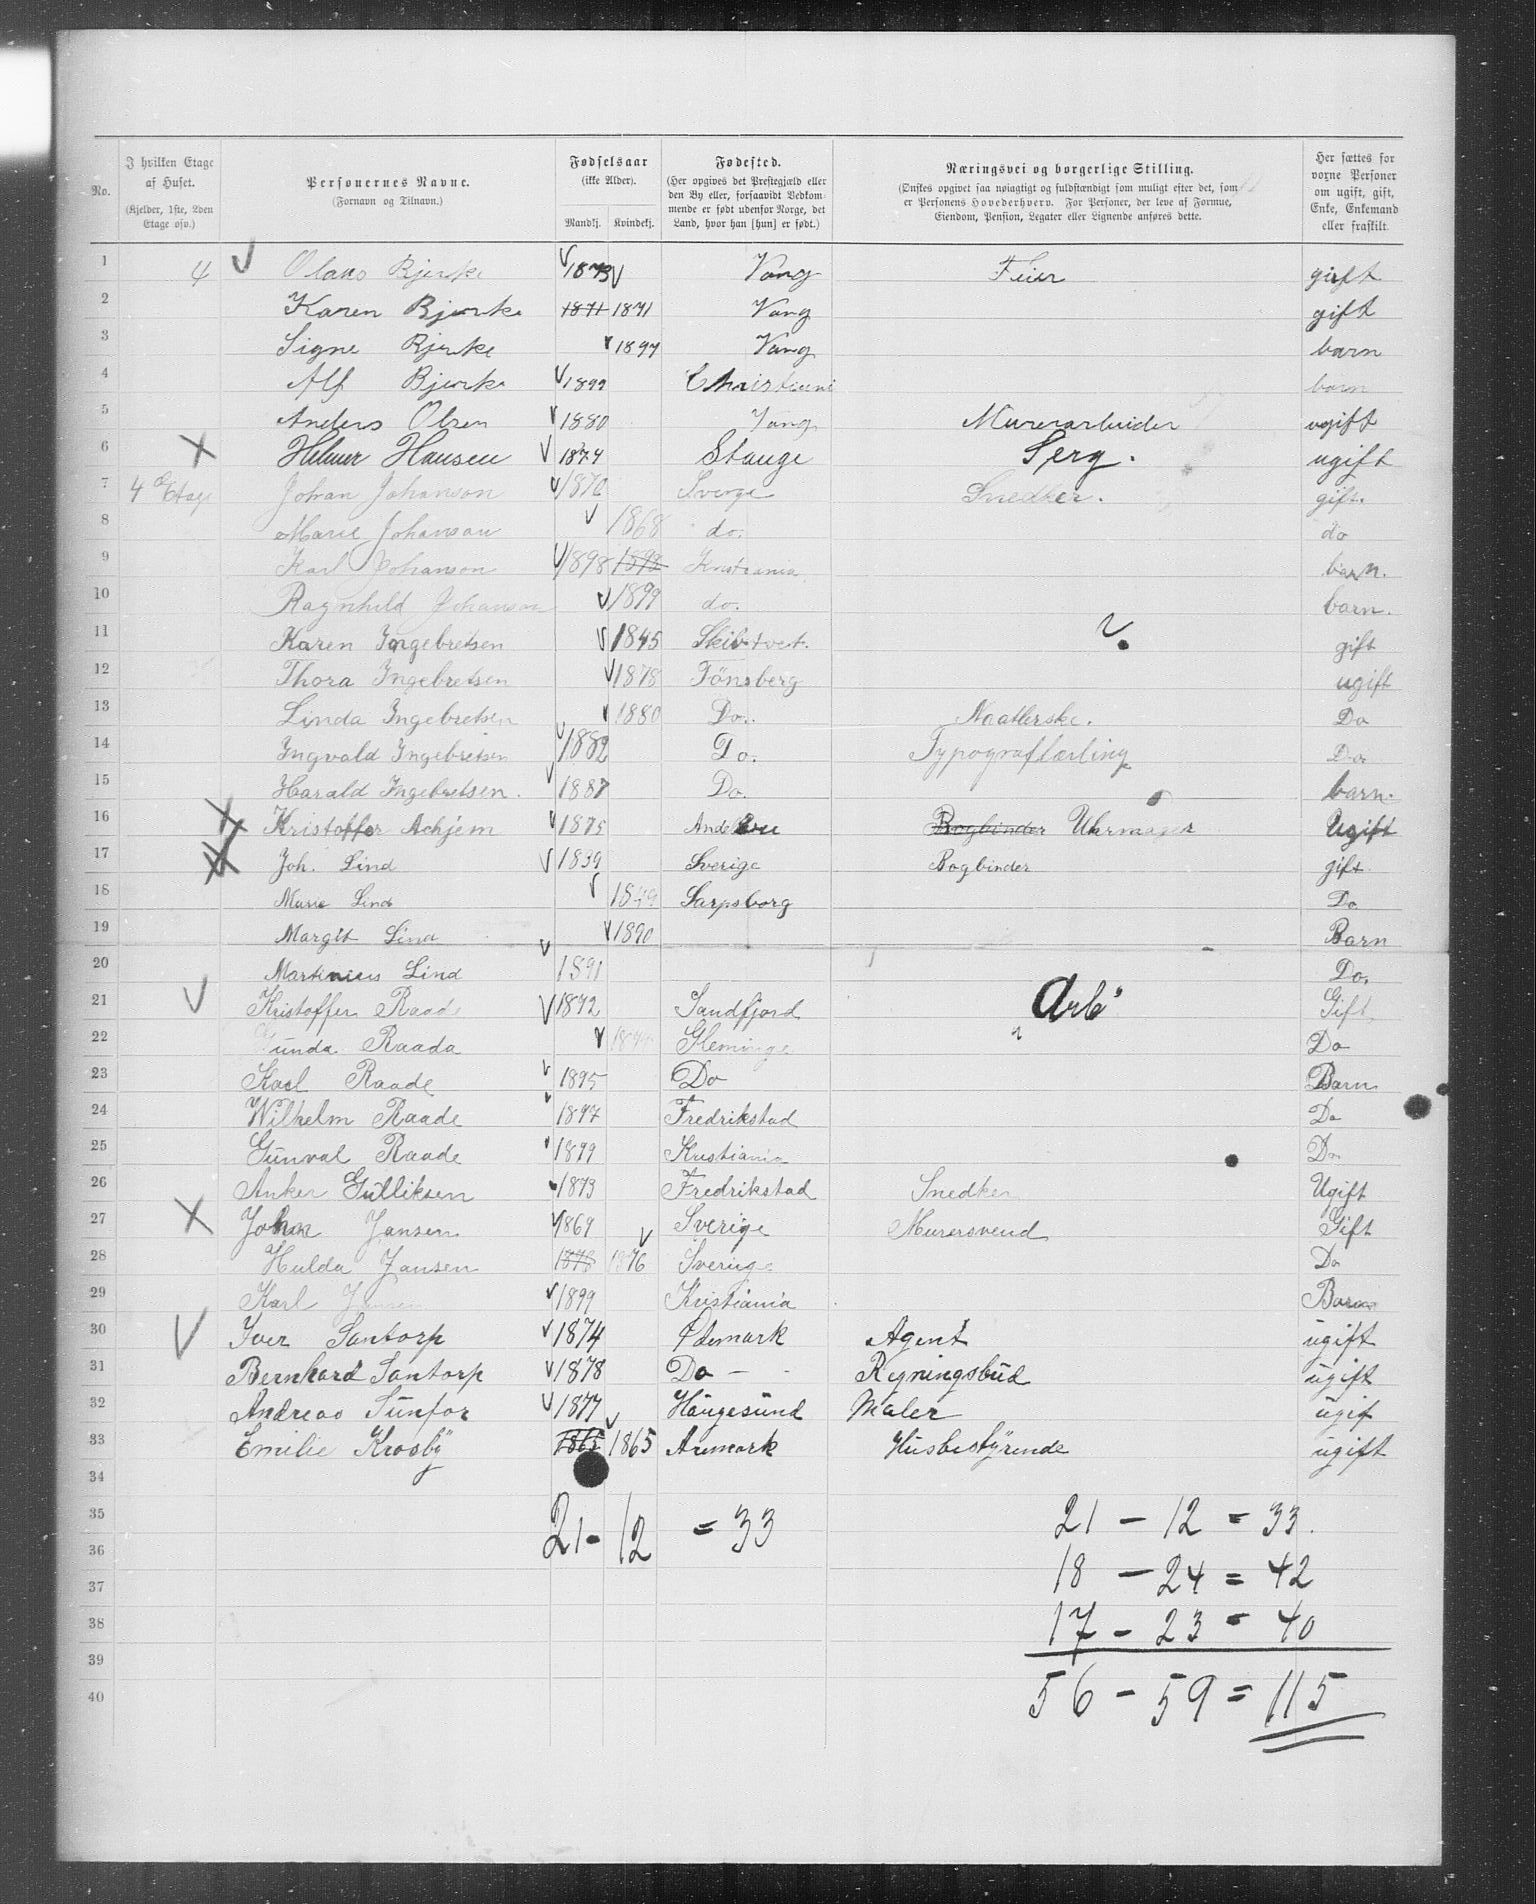 No. I hvilken Etage af Huset. (Kjelder, 1ste, 2den Etage osv.) Personernes Navne. (Fornavn og Tilnavn.) Fødselsaar (ikke Alder). Mandkj. Kvindekj. Fødested. (Her opgives det Prestegjæld eller den By eller, forsaavidt Vedkommende er født udenfor Norge, det Land, hvor han [hun] er født.) Næringsvei og borgerlige Stilling. (Ønskes opgivet saa nøiagtigt og fuldstændigt som muligt efter det, som er Personens Hovederhverv. For Personer, der leve af Formue, Eiendom, Pension, Legater eller Lignende anføres dette. Her sættes for voxne Personer om ugift, gift, Enke, Enkemand eller fraskilt.
1 4 Olaus Bjerke 1873 Vang Feier gift
2 Karen Bjerke 1871 1871 Vang gift
3 Signe Bjerke 1897 Vang barn
4 Alf Bjerke 1899 Christiani barn
5 Anders Olsen 1880 Vang Murerarbeider ugift
6 Helmer Hansen 1874 Stange Serg. ugift
7 4de Etage Johan Johanson 1876 Sverge Snedker. gift.
8 Marie Johanson 1868 do. do
9 Karl Johanson 1898 1898 Kristiania barn.
10 Ragnhild Johanson 1899 do. barn.
11 Karen Ingebretsen 1845 Skibtvet. ? gift
12 Thora Ingebretsen 1878 Tönsberg ugift
13 Linda Ingebretsen 1880 Do. Naatlerske. Do
14 Ingvald Ingebretsen 1882 Do. Typograflærling Do.
15 Harald Ingebretsen. 1887 Do. barn.
16 Kristoffer Achjem 1875 Bogbinder Uhrmager Ugift
17 Joh. Lind 1839 Sverige Bogbinder gift
18 Marie Lind Sarpsborg Do
19 Margit Lind 1890 Barn
20 Martinius Lind 1891 Do.
21 Kristoffer Raade 1872 Sandfjord Arb. Gift
22 Gunda Raada Gleminge Do
23 Karl Raade 1895 Do Barn
24 Wilhelm Raade 1897 Fredrikstad Do
25 Gunval Raade 1899 Kristiania Do
26 Anker Gulliksen 1873 Fredrikstad Snedker Ugift
27 Johan Jansen 1869 Sverige Murersvend Gift
28 Hulda Jansen 1876 1876 Sverige Do
29 Karl Jansen 1899 Kristiania Barn
30 Iver Santorp 1874 Ødemark Agent ugift
31 Bernhard Santorp 1878 Do Regningsbud ugift
32 Andreas Sunfor 1877 Haugesund Maler ugif
33 Emilie Krosby 1865 1865 Aremark Husbestyrende ugift
34
35 21 - 12 = 33 21 - 12 = 33.
36 18 - 24 = 42
37
38 17 - 23 = 40
39
40 56 - 59 = 115